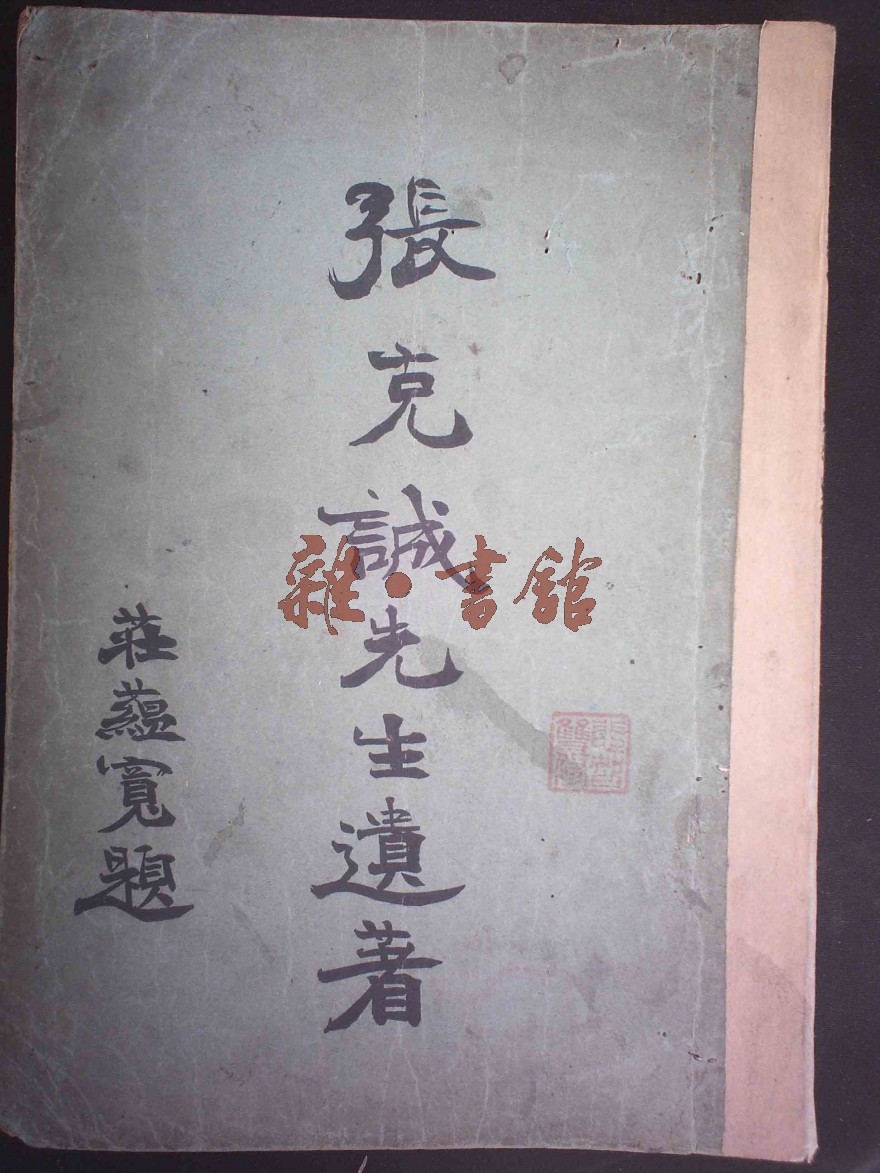 張克誠先生遺著
莊蘊寬題
雜·書館